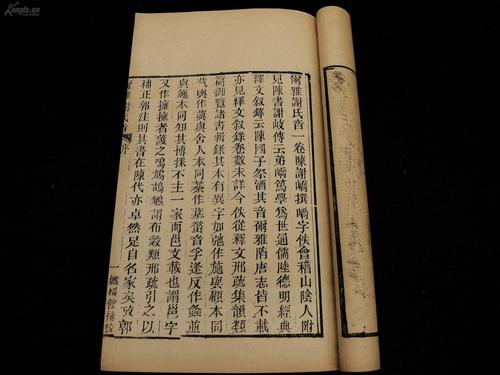 爾雅謝氏音一卷陳謝嶠撰嶠字佚會稽山陰人附
見陳書謝岐傳云弟嶠篤學爲世通儒陸德明經典
釋文叙錄云陳國子祭酒其音爾雅隋唐志皆不載
亦見釋文叙錄卷數未詳今佚從釋文邢疏集韻類
篇諸書輯錄其本有異字如弛作施與顧本同
作與舍人本同作音孚逢反作並
與施本同知其博採不主一家而邕支載也謂邕字
又作擁擁者蔽之鳴鳩謂布穀類邢疏引之以
補正郭注則其書在陳代亦卓然足自名家矣攷郭
謝氏音 序
一 嫏嬛館補校
Kongfz.cn